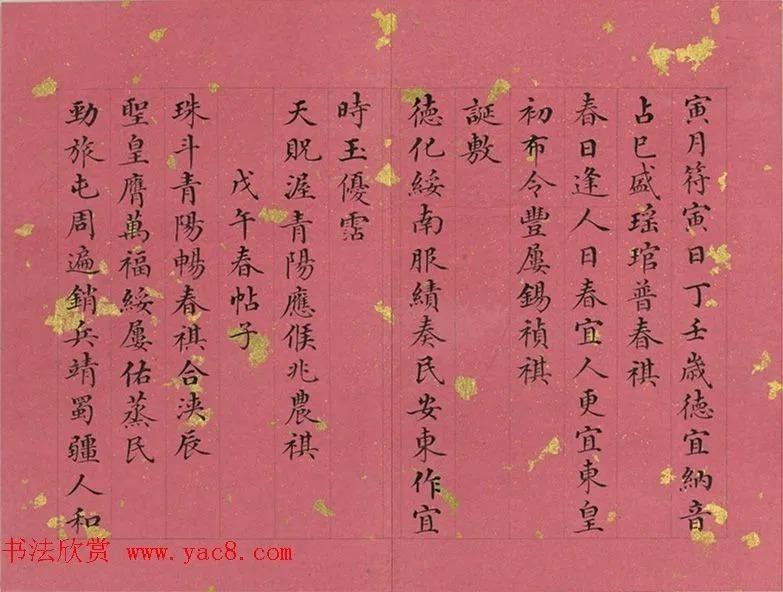 寅月符寅日丁壬歲德宜納音
占巳盛瑶琯普春祺
春日逢人日春宜人更宜東皇
初布令豐屢錫禎祺
誕敷
德化綏南服績奏民安東作宜
時玉優霑
天貺渥青陽應候兆農祺
戊午春帖子
珠斗青陽暢春祺合浹辰
聖皇膺萬福綏屢佑蒸民
勁旅屯周遍銷兵靖蜀疆人和
书法欣赏 www.yac8.com